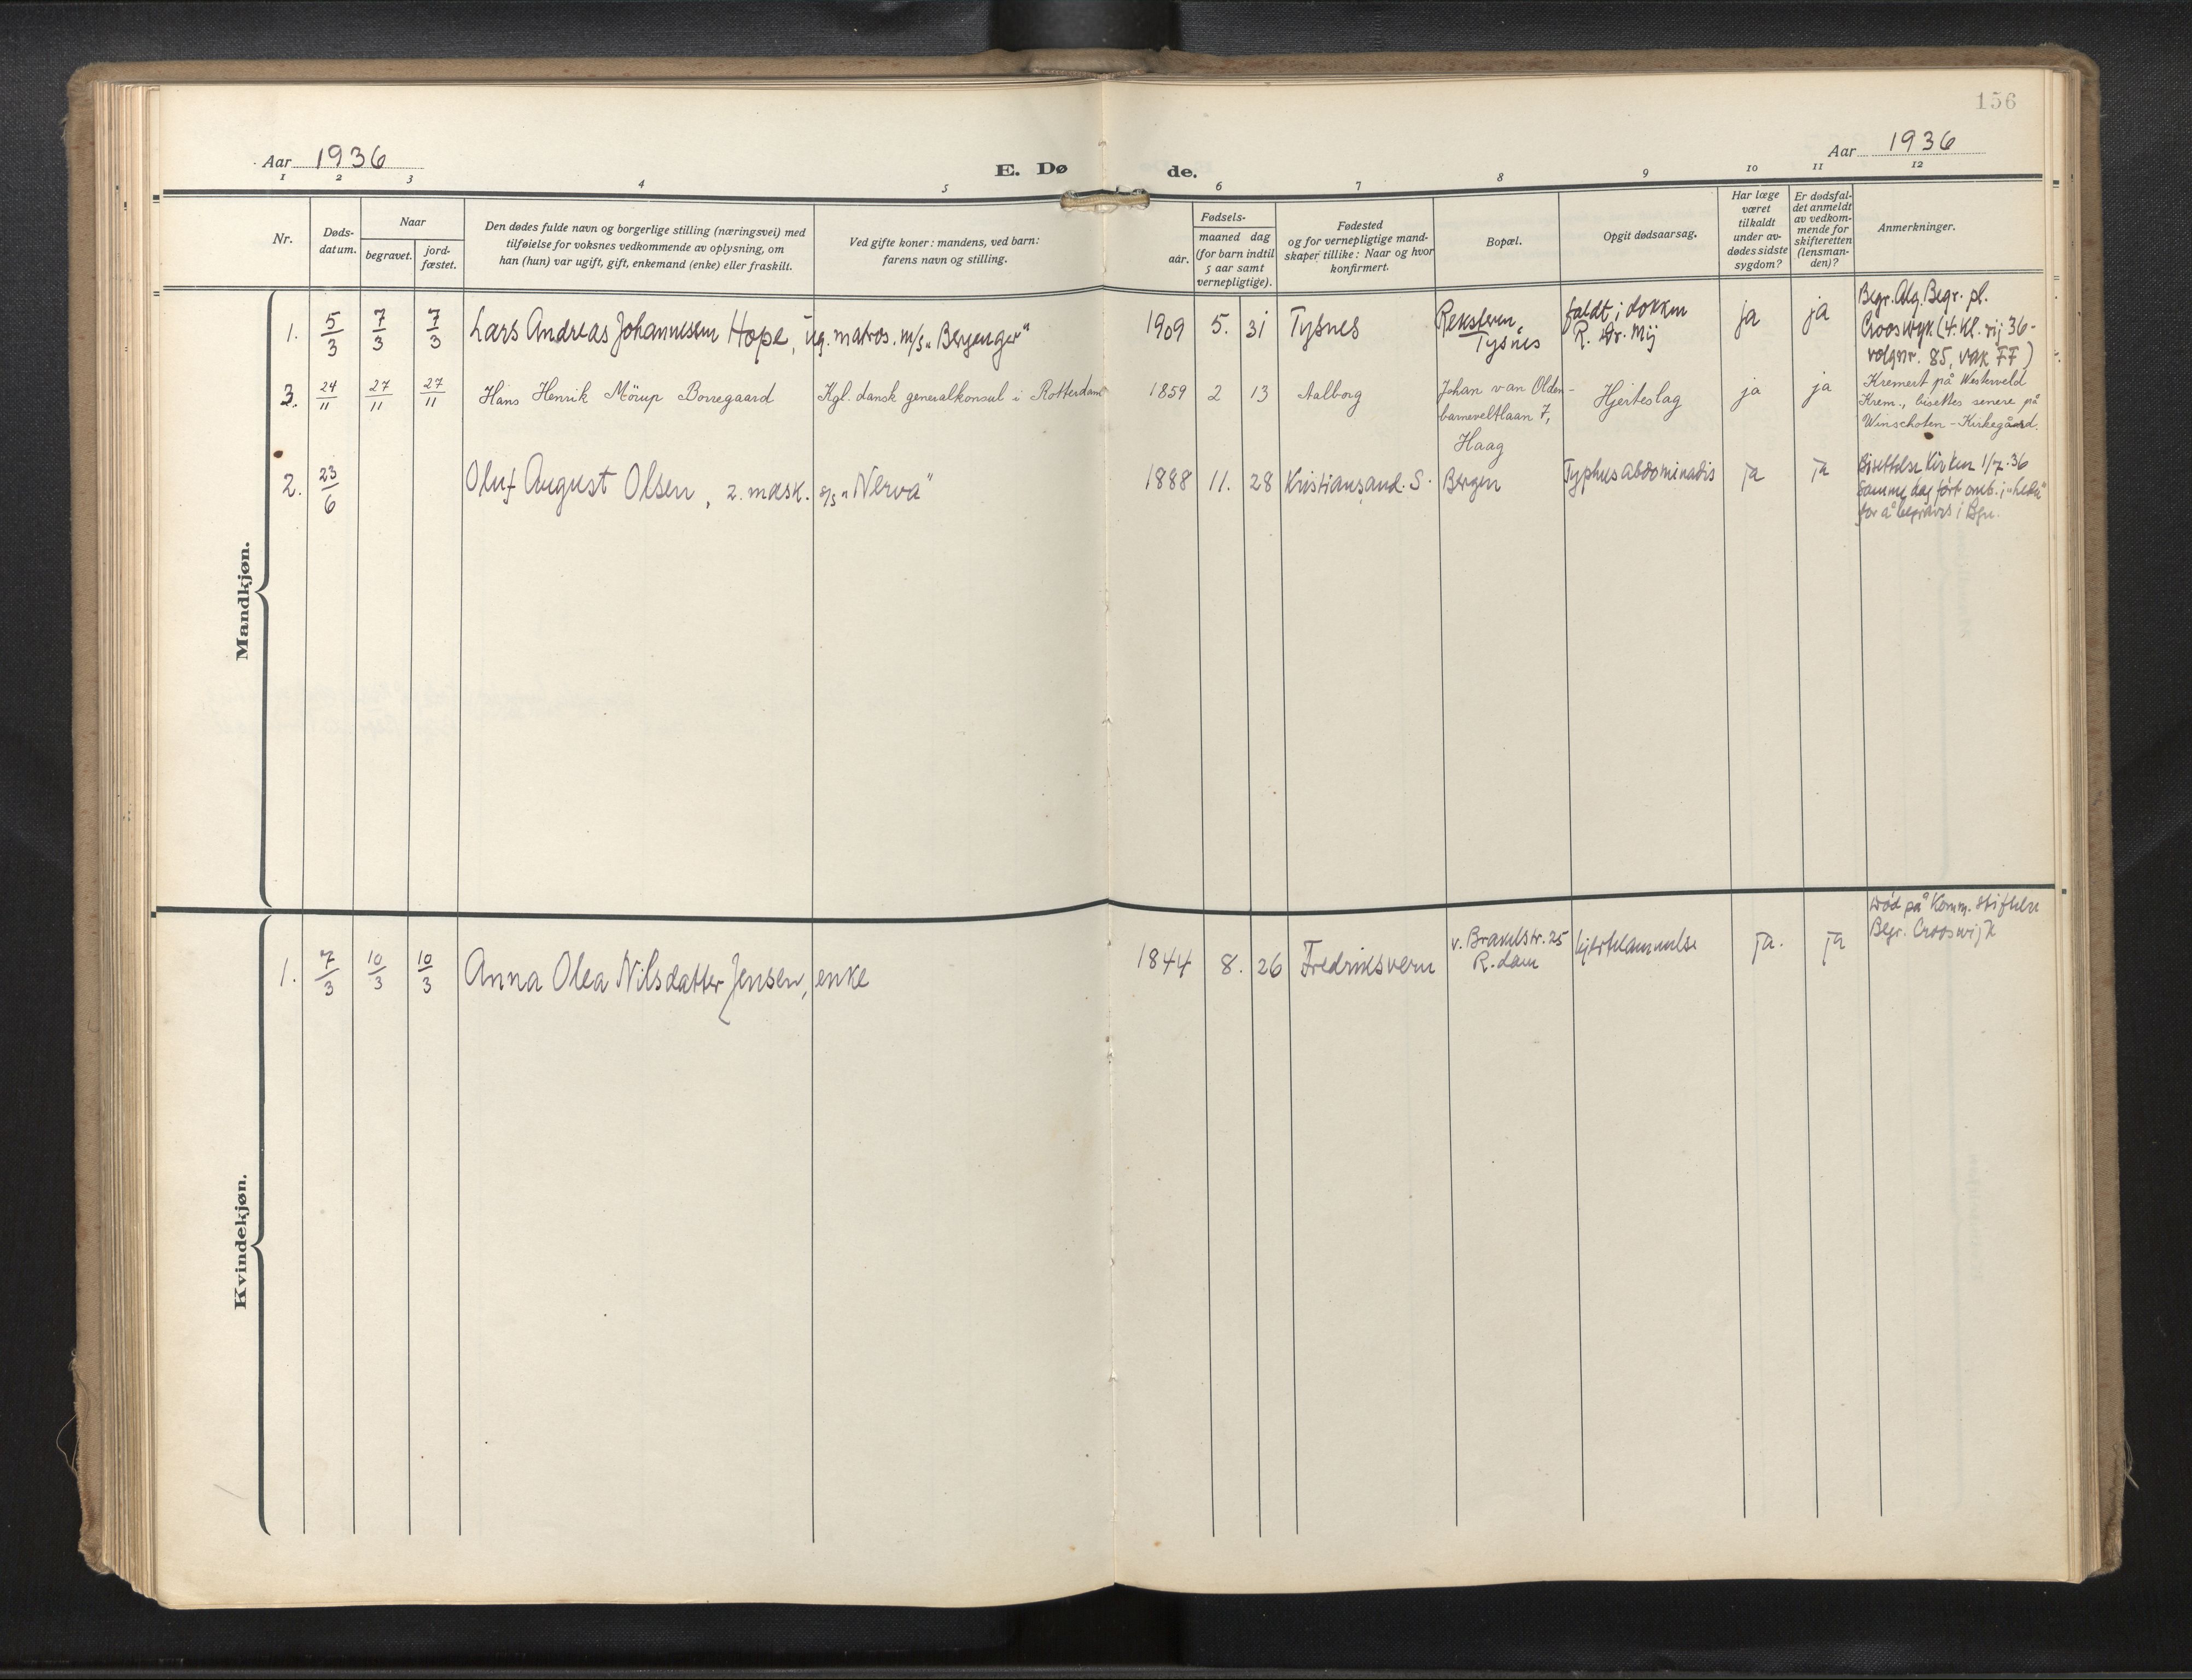 156
Aar 1936
E. Dø de.
Aar 1936
1 2 3 4 5 6 7 8 9 10 11 12
Nr.
Døds-
datum.
Naar
begravet.
jord-
fæstet.
Den dødes fulde navn og borgerlige stilling (næringsvei) med
tilføielse for voksnes vedkommende av oplysning, om
han (hun) var ugift, gift, enkemand (enke) eller fraskilt.
Ved gifte koner: mandens, ved barn:
farens navn og stilling.
Fødsels-
aar.
maaned dag
(for barn indtil
5 aar samt
vernepligtige).
Fødested
og for vernepligtige mand-
skaper tillike: Naar og hvor
konfirmert.
Bopæl.
Opgit dødsaarsag.
Har læge
været
tilkaldt
under av-
dødes sidste
sygdom?
Er dødsfal-
det anmeldt
av vedkom-
mende for
skifteretten
(lensman-
den)?
Anmerkninger.
Mandkjøn.
1. 5/3 7/3 7/3 Lars Andreas Johannesen Hope, ug. matros. m/s „Beryenger" 1909 5. 31 Tysnes
Reksteren,
Tysnes
faldt i dokken
R. Dr. Mij
ja ja
Begr. Alg. Begr. pl.
Crooswyk (4. Kl. rij 36-
volgnr. 85, vak FF)
3. 24/11 27/11 27/11 Hans Henrik Mörup Borregaard Kgl. dansk generalkonsul i Rotterdam 1859 2 13 Aalborg
Johan van Olden-
barneveltlaan 7,
Haag
Hjerteslag ja ja
Kremert på Westerveld
Krem., bisettes senere på
Winschoten-Kirkegård.
2. 23/6 Oluf August Olsen, 2. mask. s/s „Nerva" 1888 11. 28 Kristiansand. S. Bergen Typhus abdominalis ja ja
Bisettelse Kirken 1/7-36
Samme dag ført omb. i
for å begraves i Bgn.
Kvindekjøn.
1. 7/3 10/3 10/3 Anna Olea Nilsdatter Jensen, enke 1844 8. 26 Fredriksvern
v. Brakelstr. 25
R.dam
hjertelammelse ja. ja
Død på Komm. stiftelse
Begr. Crooswijk